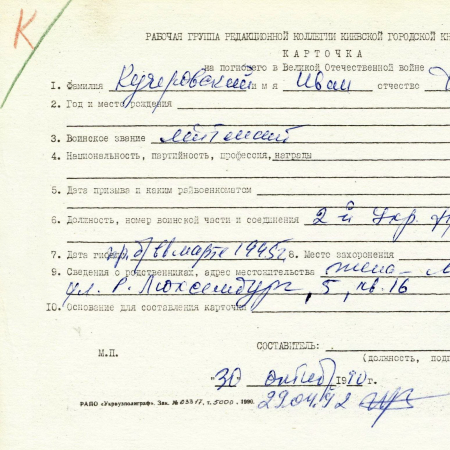 К
РАБОЧАЯ ГРУППА РЕДАКЦИОННОЙ КОЛЛЕГИИ КИЕВСКОЙ ГОРОДСКОЙ КН
КАРТОЧКА
на погибшего в Великой Отечественной войне
1. Фамилия Кучеровский имя Иван отчество
2. Год и место рождения
3. Воинское звание лейтенант
4. Национальность, партийность, профессия, награды
5. Дата призыва и каким райвоенкоматом
6. Должность, номер воинской части и соединения 2-й Укр. фр
7. Дата гибели пр. б/в в марте 1945г. 8. Место захоронения
9. Сведения о родственниках, адрес местожительства жена – М
ул. Р. Люксембург, 5, кв. 16
10. Основание для составления карточки
СОСТАВИТЕЛЬ:
М.П. (должность, подп
"30 октяб 1990г.
29.04.92
РАПО «Укрвузполиграф». Зак. № 03317, т. 5000, 1990.